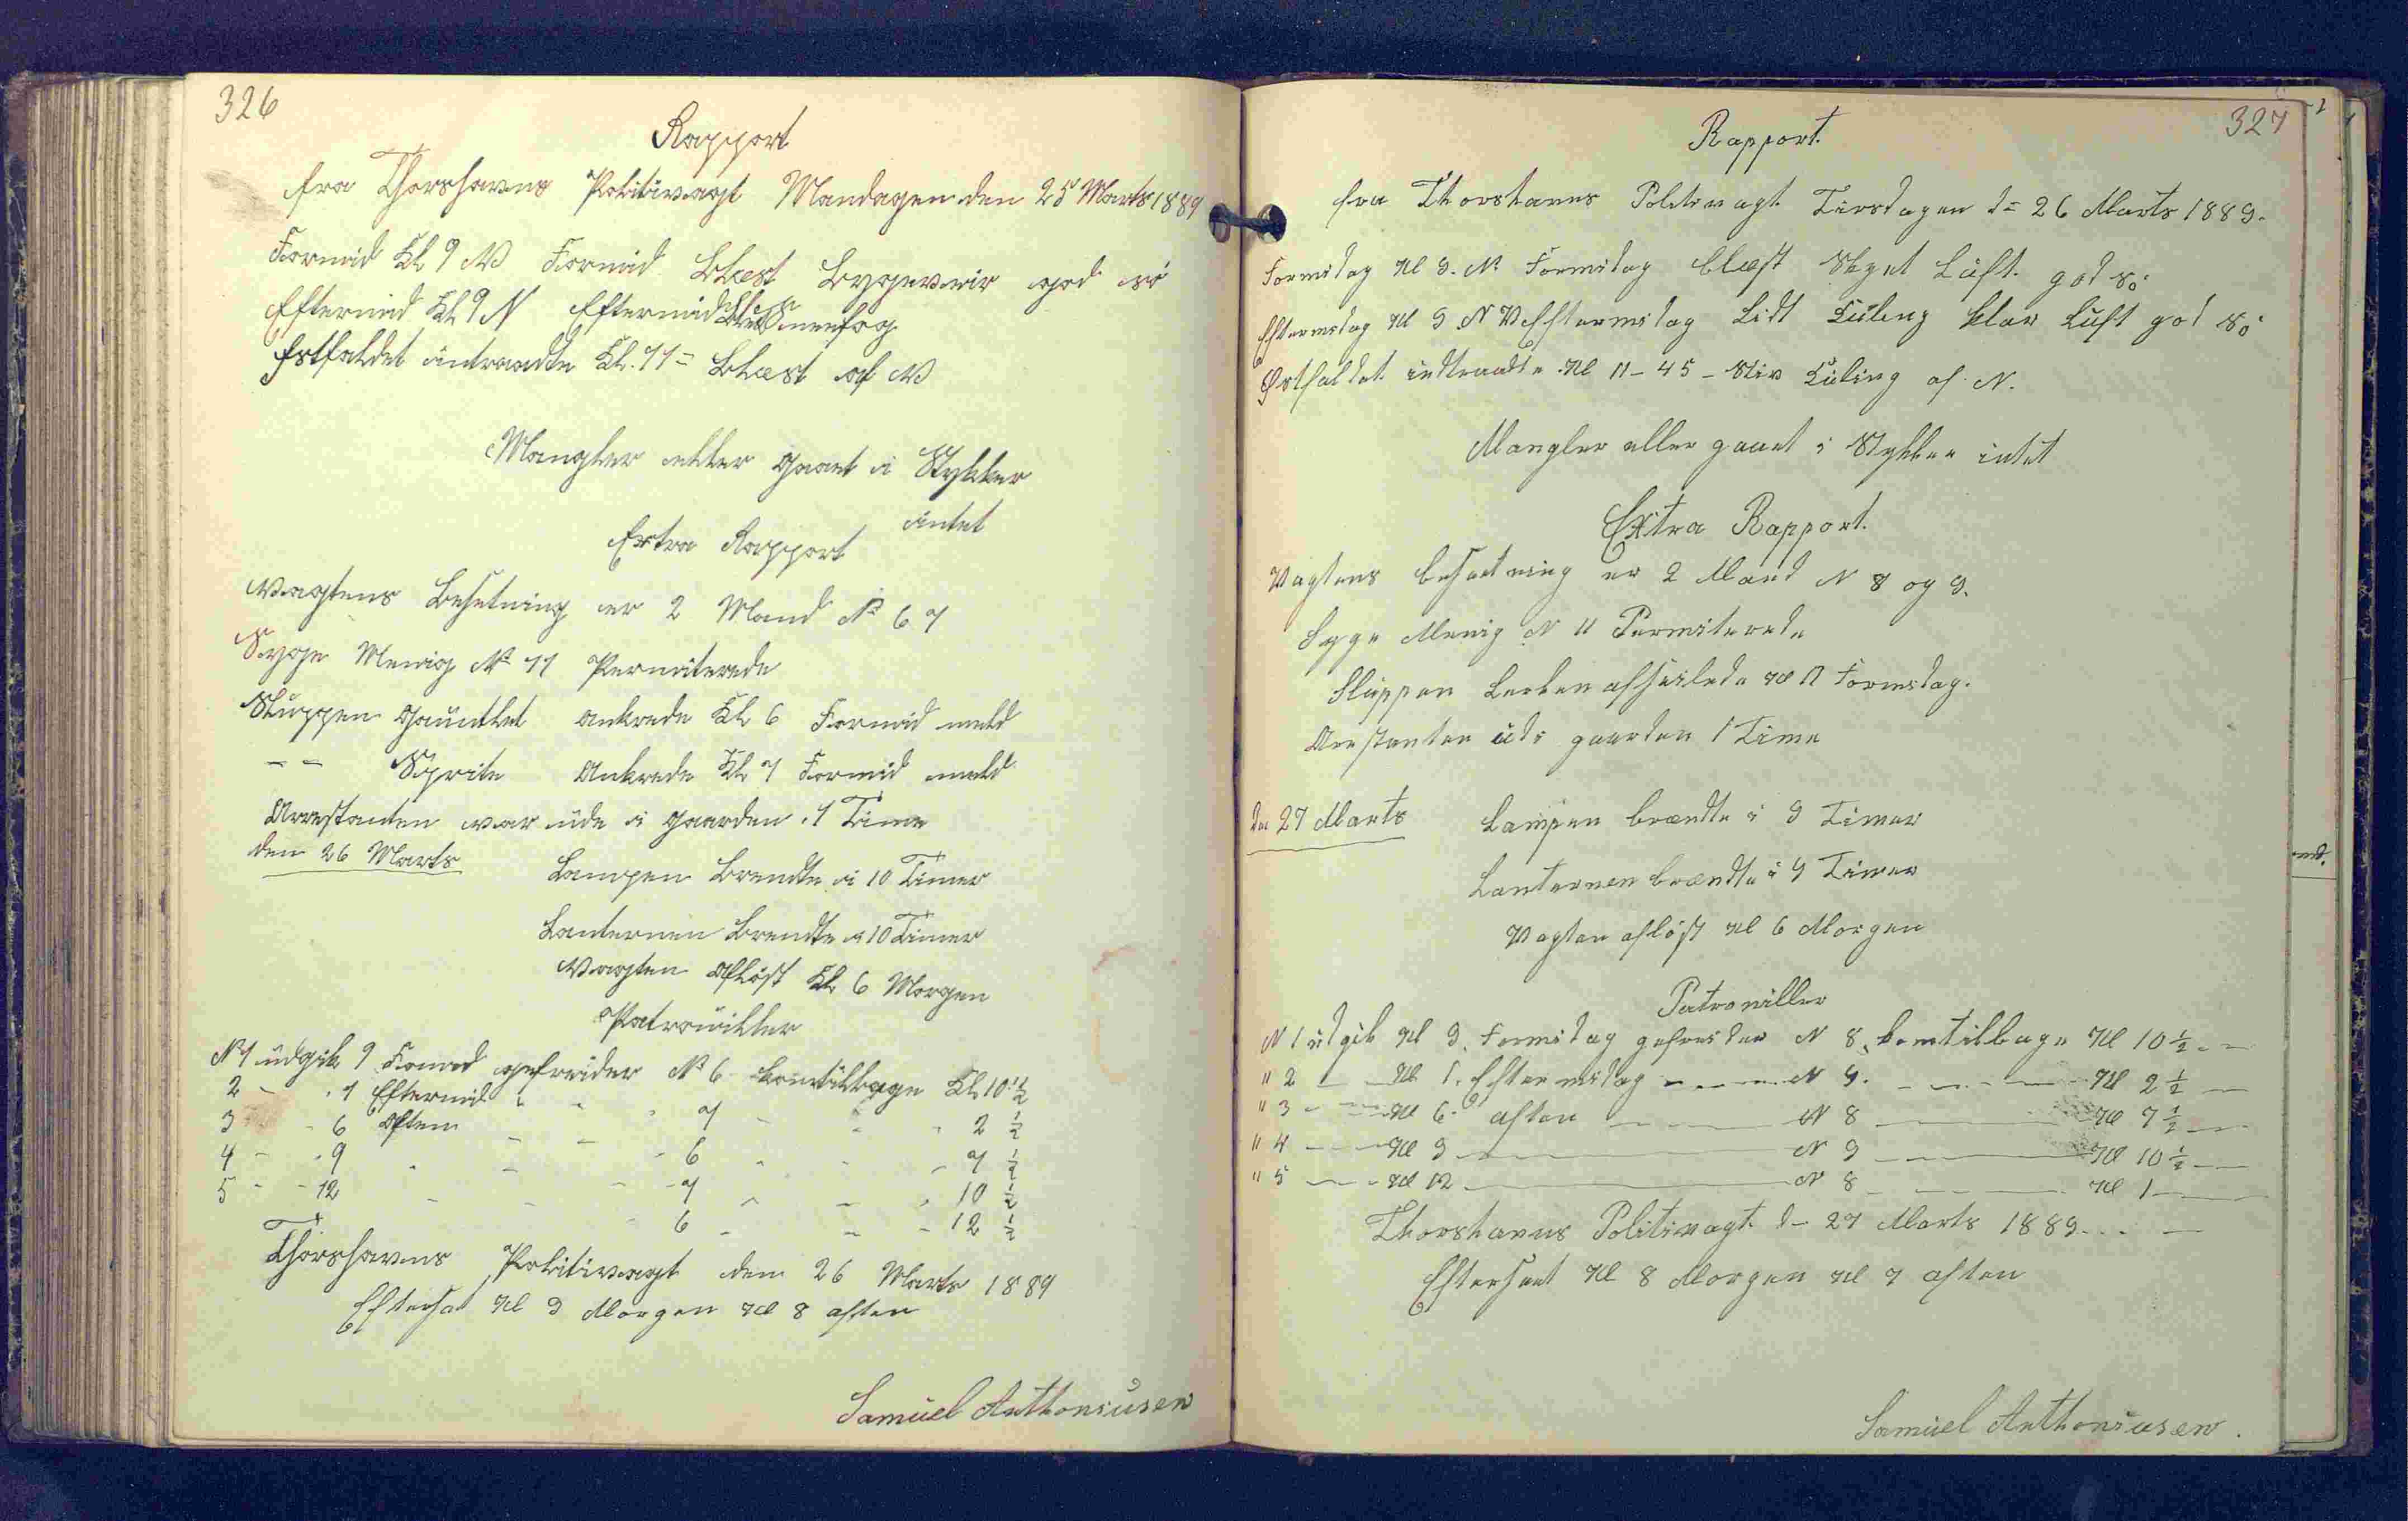 326
Rapport
fra Thorshavns Politivagt Mandagen den 25 Marts 1889
Formid Kl 9 N Formid Blæst Bygeveir god sö
Eftermid Kl 9 N Eftermid Sneefog
Østfaldet intraadte Kl. 11 = Blæst af N
Mangler eller gaaet i Stykker
intet
Extra Rapport
Vagtens Besetning er 2 Mand No 6 7
Syge Menig No 11 Permiterede
Sluppen Gauntlet ankrede Kl 6 Formid meld
– – Sprite Ankrede Kl 7 Formid meld
Arrestanten var ude i gaarden 1 Time
den 26 Marts
Lampen Brendte i 10 Timer
Lanternen Brendte i 10 Timer
Vagten Afløst Kl 6 Morgen
Patrouiller
No 1 udgik 9 Formid gefreider No 6 komtilbage Kl 10 1/2
2 - . 1 Eftermid " - " 7 - " " 2 1/2
3 - 6 Aften - - - 6 - - - 7 1/2
4 - . 9 - - - 7 - - - 10 1/2
5 - - 12 - - - 6 - - - 12 1/2
Thorshavns Politivagt den 26 Marts 1889
Efterset Kl 9 Morgen Kl 8 aften
Samuel Anthoniusen
327
Rapport.
fra Thorshavns Politivagt Tirsdagen d= 26 Marts 1889.
Formidag Kl 9. N. Formidag blæst Skyet Luft. god sö
Eftermidag Kl 9 N V Eftermidag Lidt Kuling klar Luft god sö
Østfaldet indtraadte Kl 11-45 - Stiv Kuling af N.
Mangler eller gaaet i Stykker intet
Extra Rapport.
Vagtens besætning er 2 Mand N 8 og 9.
Syge Menig N 11 Permiterede
Sluppen afseilede Kl 11 Formidag.
Arestanten udi gaarden 1 Time
den 27 Marts
Lampen brændte i 9 Timer
Lanternen brændte i 9 Timer
Vagten afløst Kl 6 Morgen
Patrouiller
N 1 udgik Kl 9. Formidag gefreider N 8. komtilbage Kl 10 1/2 - -
" 2 - - Kl 1. Eftermidag - - - - N 9. - - - - - Kl 2 1/2 -
" 3 - - - Kl 6. aften - - - N 8 - - Kl 7 1/2 - -
" 4 - - - Kl 9 - - N 9 - - Kl 10 1/2 - -
" 5 - - - Kl 12 - - N 8 - - - Kl 1 - -
Thorshavns Politivagt d- 27 Marts 1889. - - -
Efterseet Kl 8 Morgen Kl 7 aften
Samuel Anthoniusen.